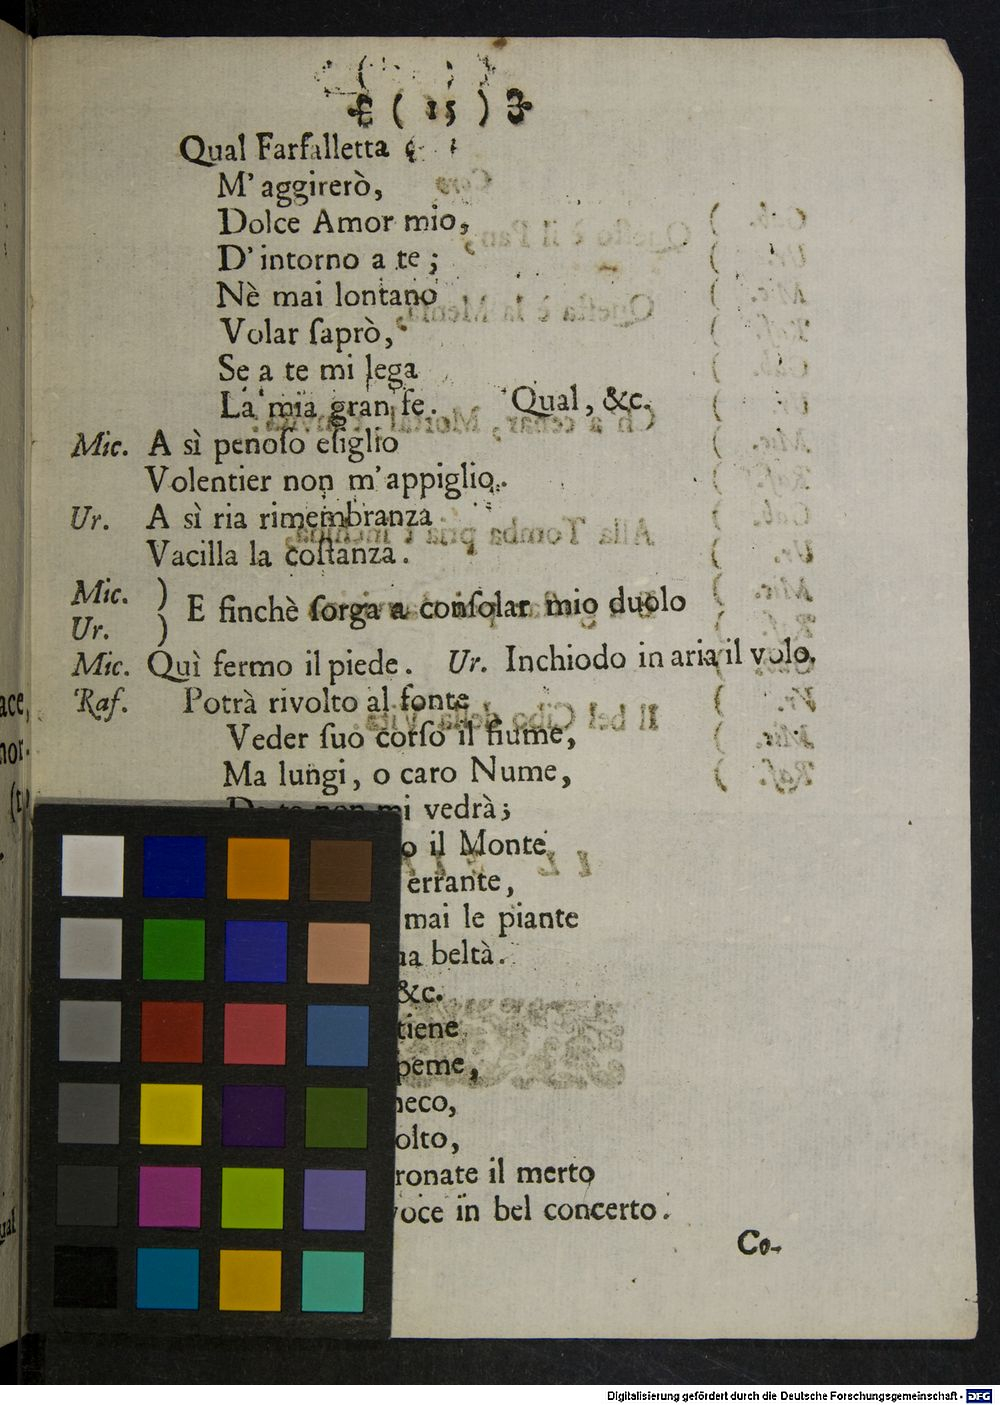 ( 15 )
Qual Farfalletta
M' aggirerò,
Dolce Amor mio,
D' intorno a te ;
Nè mai lontano
Volar ſaprò,
Se a te mi lega
La mia gran fe. Qual, &c.
Mic. A sì penoſo eſiglio
Volentier non m' appiglio.
Ur. A sì ria rimembranza
Vacilla la coſtanza.
Mic. )
Ur. ) E finchè ſorga a conſolar mio duolo
Mic. Quì fermo il piede. Ur. Inchiodo in aria il volo.
Raf. Potrà rivolto al fonte
Veder ſuo corſo il fiume,
Ma lungi, o caro Nume,
Da te non mi vedrà;
il Monte
errante,
mai le piante
beltà.
&c.
tiene
peme,
meco,
olto,
ronate il merto
voce in bel concerto.
Co-
ace,
nor-
(t
Digitalisierung gefördert durch die Deutsche Forschungsgemeinschaft - DFG